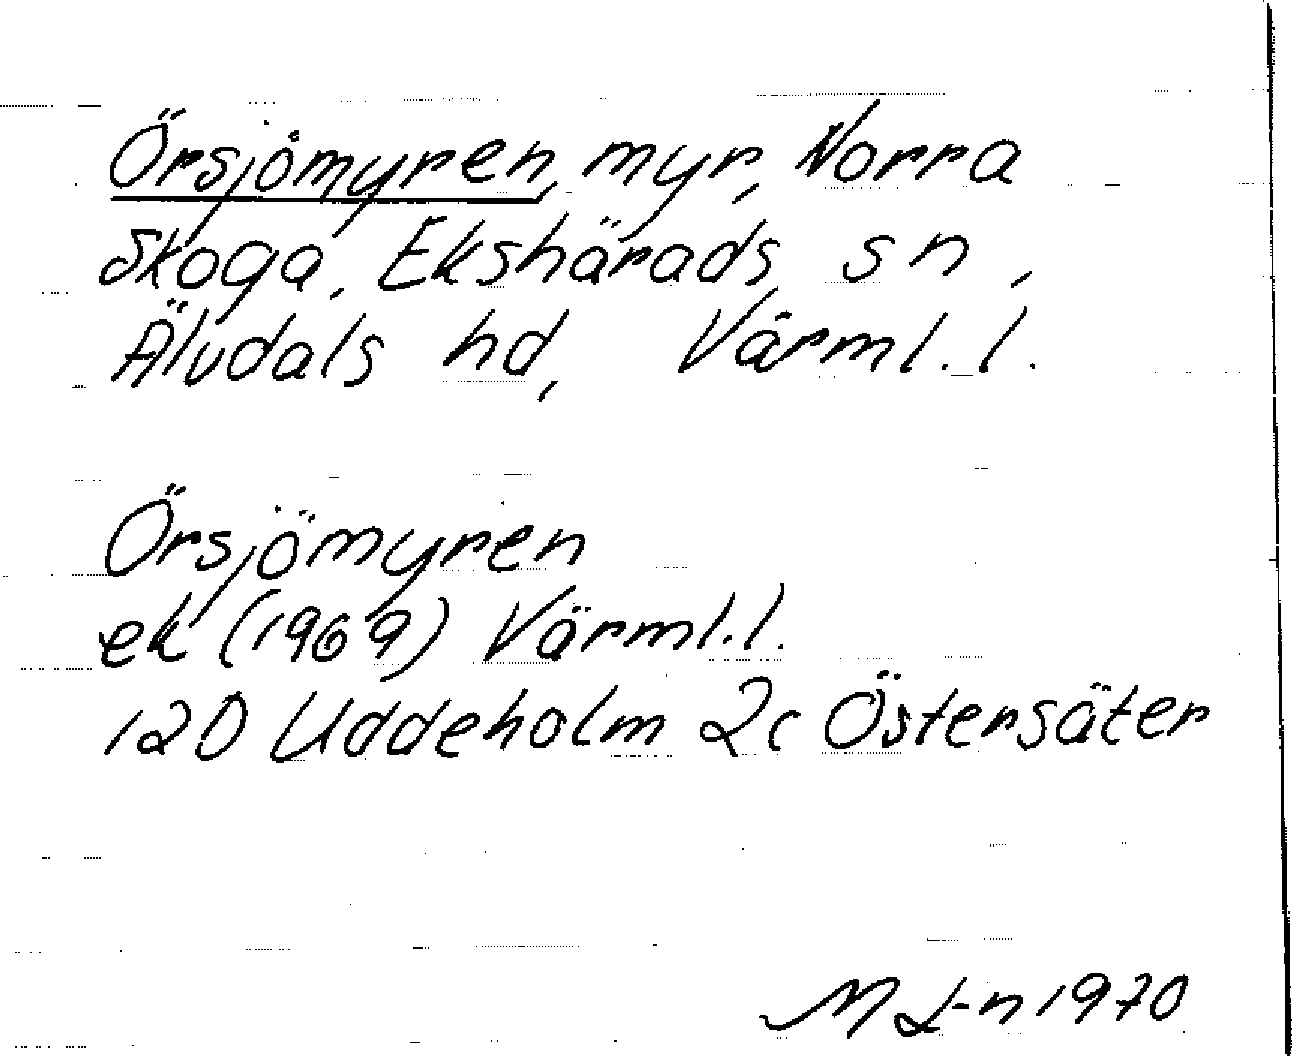 Örsjömyren, myr, Norra
Skoga, Ekshärads sn,
Älvdals hd, Värml.l.
Örsjömyren
ek (1969) Värml.l.
12D Uddeholm 2c Östersäter
M L-n 1970